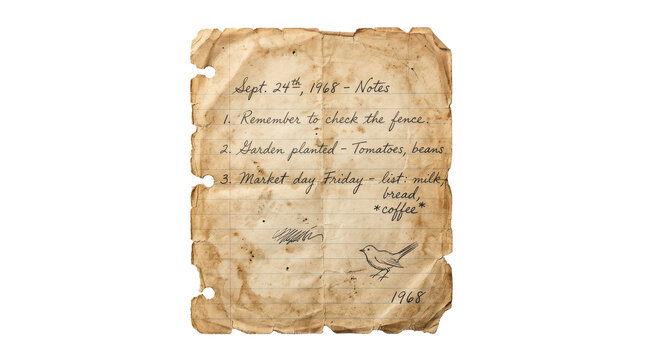 Sept. 24th, 1968 – Notes
1. Remember to check the fence.
2. Garden planted – Tomatoes, beans
3. Market day Friday – list: milk,
bread,
*coffee*
1968